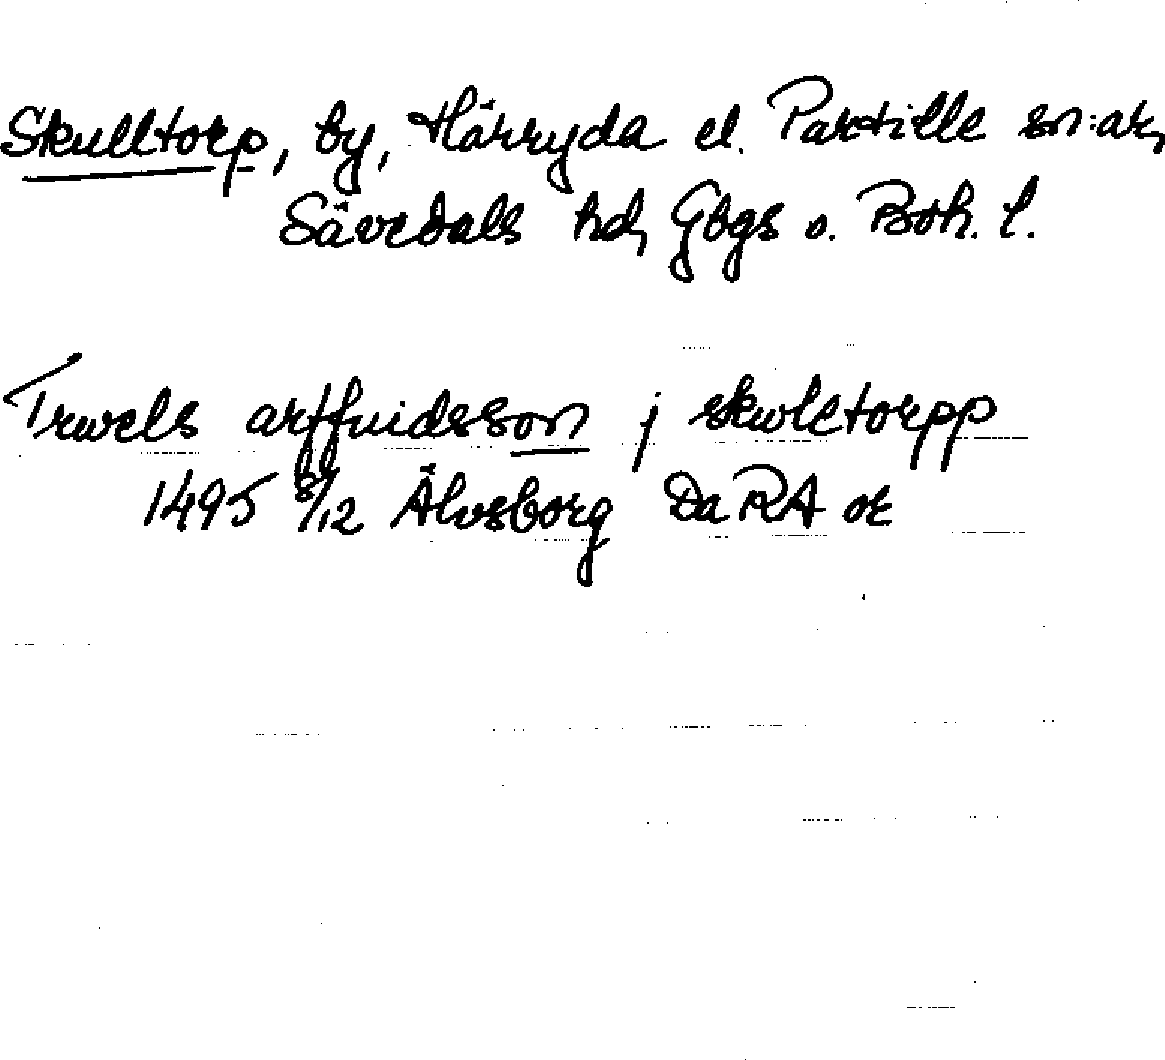 Skulltorp, by, Härryda el. Partille sn:ar,
Sävedals hd, Gbgs o. Boh. l.
Trwels arffuidsson j skwletorpp
1495 8/12 Älvsborg DaRA or